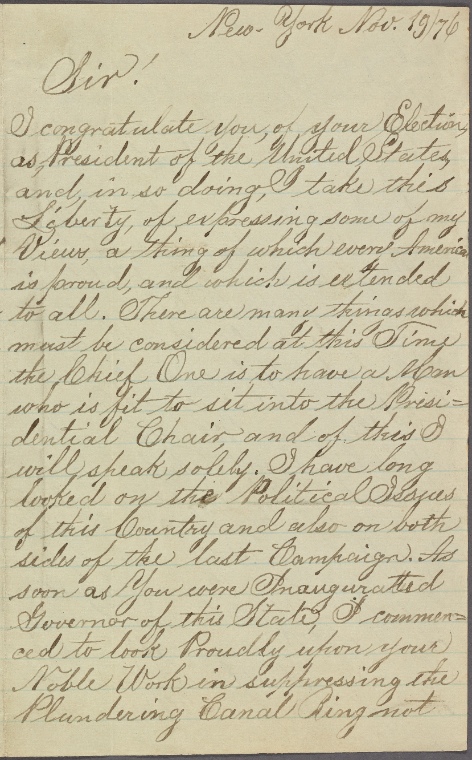 New-York Nov. 19/76
Sir!
I congratulate you, of your Election,
as President of the United States,
and, in so doing, I take this
Liberty, of expressing some of my
Views, a thing of which every America
is proud, and which is extended
to all. There are many things which
must be considered at this Time
the Chief One is to have a Man
who is fit to sit into the Presi=
dential Chair and of this I
will speak solely. I have long
looked on the Political Issues
of this Country and also on both
sides of the last Campaign. As
soon as You were Inaugurated
Governor of this State, I commen=
ced to look Proudly upon your
Noble Work in suppressing the
Plundering Canal Ring not